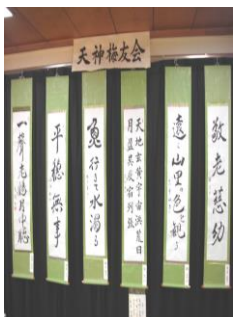 天神梅友会
敬老慈幼
遠く山の色を観る
天地玄黄宇宙洪荒日
月盈昃辰宿列張
魚行きて水濁る
平穏無事
一聲老鶴月中聴